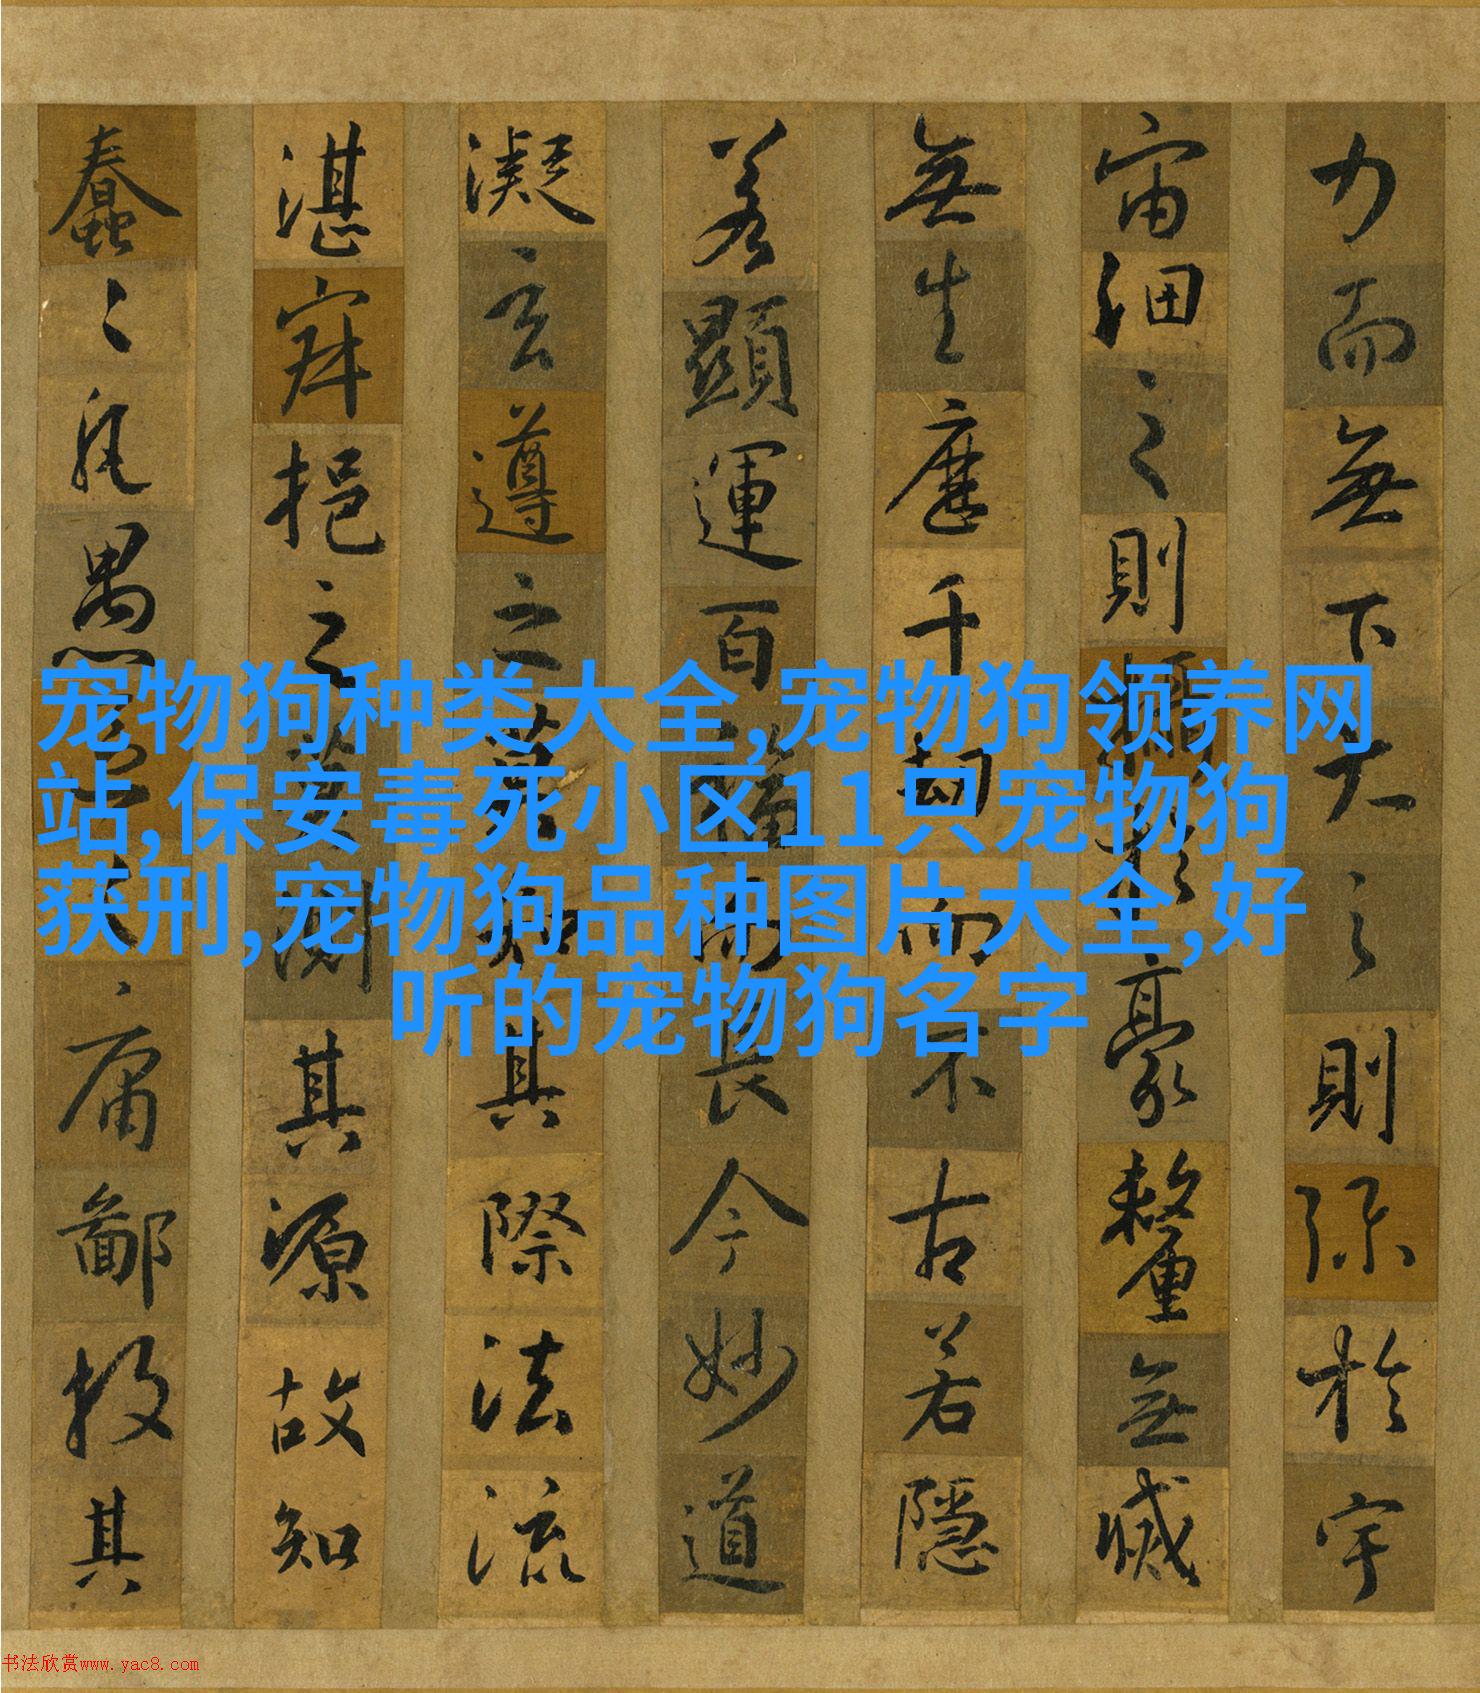 力而無下大之則弥於宇
宙細之則攝於豪釐無滅
無生歷千劫而不古若隱
若顯運百福而長今妙道
凝玄遵之莫知其際法流
湛寂挹之莫測其源故知
蠢々凡愚區々庸鄙投其
宠物狗种类大全,宠物狗领养网
站,保安毒死小区11只宠物狗
获刑,宠物狗品种图片大全,好
听的宠物狗名字
书法欣赏www.yac8.com